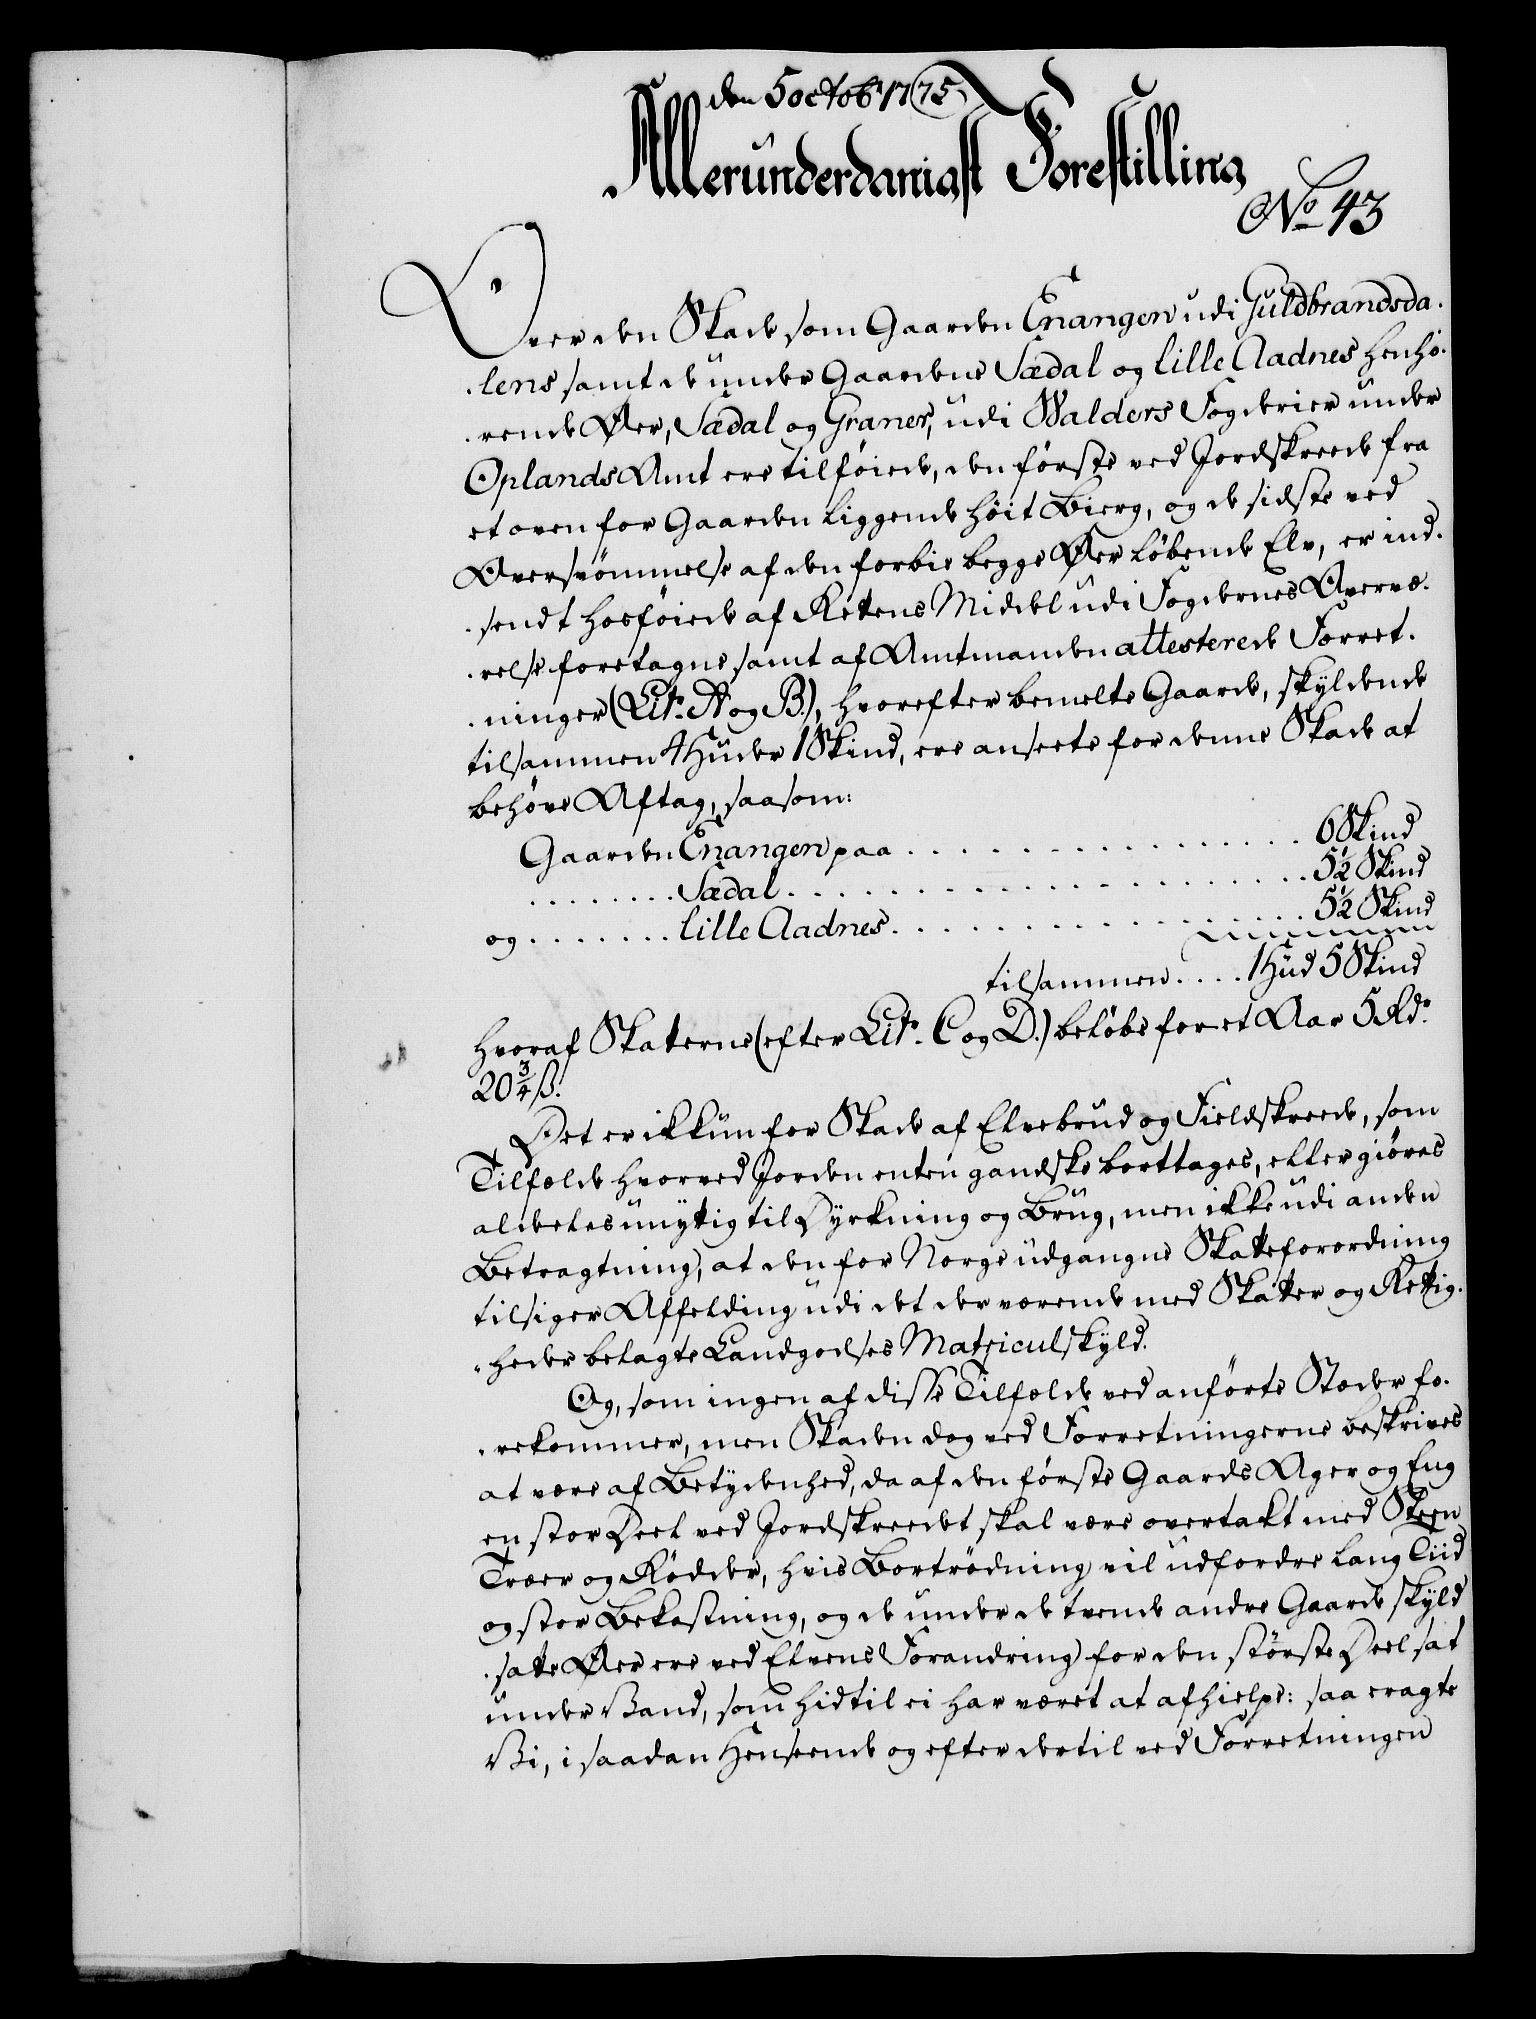 den 5 octob: 1775
Allerunderdanigst Forestilling
No 43
Over den Skade som Gaarden Enangen udi Guldbrandsda.
.lens samt de under Gaardene Sædal og lille Aadnes henhø.
.rende Øer, Sædal og Graner, udi Walders Fogderier under
Oplands Amt ere tilføiede, den første ved Jordskreede fra
et oven for Gaarden liggende høit Bierg, og de sidste ved
Oversvømmelse af den forbie begge Øer løbende Elv, er ind.
.sendt hosføiede af Rettens Middel udi Fogdernes Overvæ.
.relse foretagne samt af Amtmanden attesterede Forret.
.ninger (Litr. A og B.), hvorefter bemelte Gaarde, skyldende
tilsammen 4 Huder 1 Skind, ere anseete for denne Skade at
behøve Aftag, saasom:
Gaarden Enangen paa . . . . . . . . . . . . . . . . . 6 Skind
. . . . . . . . Sædal . . . . . . . . . . . . . . . . . . . . . 5½ Skind
og . . . . . . . lille Aadnes . . . . . . . . . . . . . . . . . 5½ Skind
tilsammen . . . . 1 Hud 5 Skind
hvoraf Skatterne (efter Litr. C og D.) beløbe for et Aar 5 Rdr.
20 3/4 ß.
Det er ikkun for Skade af Elvebrud og Fieldskreede, som
Tilfælde hvorved Jorden enten gandske borttages, eller giøres
aldeeles unyttig til Dyrkning og Brug, men ikke udi anden
Betragtning, at den for Norge udgangne Skatteforordning
tilsiger Affelding udi det der værende med Skatter og Rettig.
.heder belagte Landgodses Matriculskyld.
Og, som ingen af disse Tilfælde ved anførte Stæder fo.
.rekommer, men Skaden dog ved Forretningerne beskrives
at være af Betydenhed, da af den første Gaards Ager og Eng
en stor Deel ved Jordskreedet skal være overtakt med Steen
Træer og Rødder, hvis Bortrødning vil udfordre lang Tiid
og stor Bekostning, og de under de tvende andre Gaarde skyld
.satte Øer ere ved Elvens Forandring for den største Deel sat
under Vand, som hidtil ei har været at afhielpe: saa eragte
Vi, i saadan Henseende og efter dertil ved Forretningen